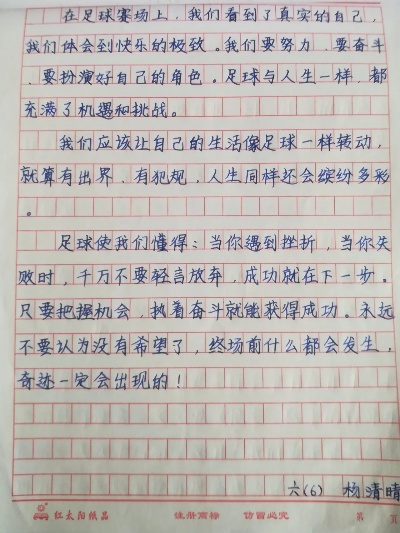 在足球赛场上，我们看到了真实的自己，
我们体会到快乐的极致。我们要努力、要奋斗
、要扮演好自己的角色。足球与人生一样、都
充满了机遇和挑战。
我们应该让自己的生活像足球一样转动，
就算有出界、有犯规，人生同样还会缤纷多彩
。
足球使我们懂得：当你遇到挫折，当你失
败时，千万不要轻言放弃，成功就在下一步。
只要把握机会，执着奋斗就能获得成功。永远
不要认为没有希望了，终场前什么都会发生，
奇迹一定会出现的！
六(6) 杨清晴
红太阳纸品 注册商标 仿冒必究 第 页